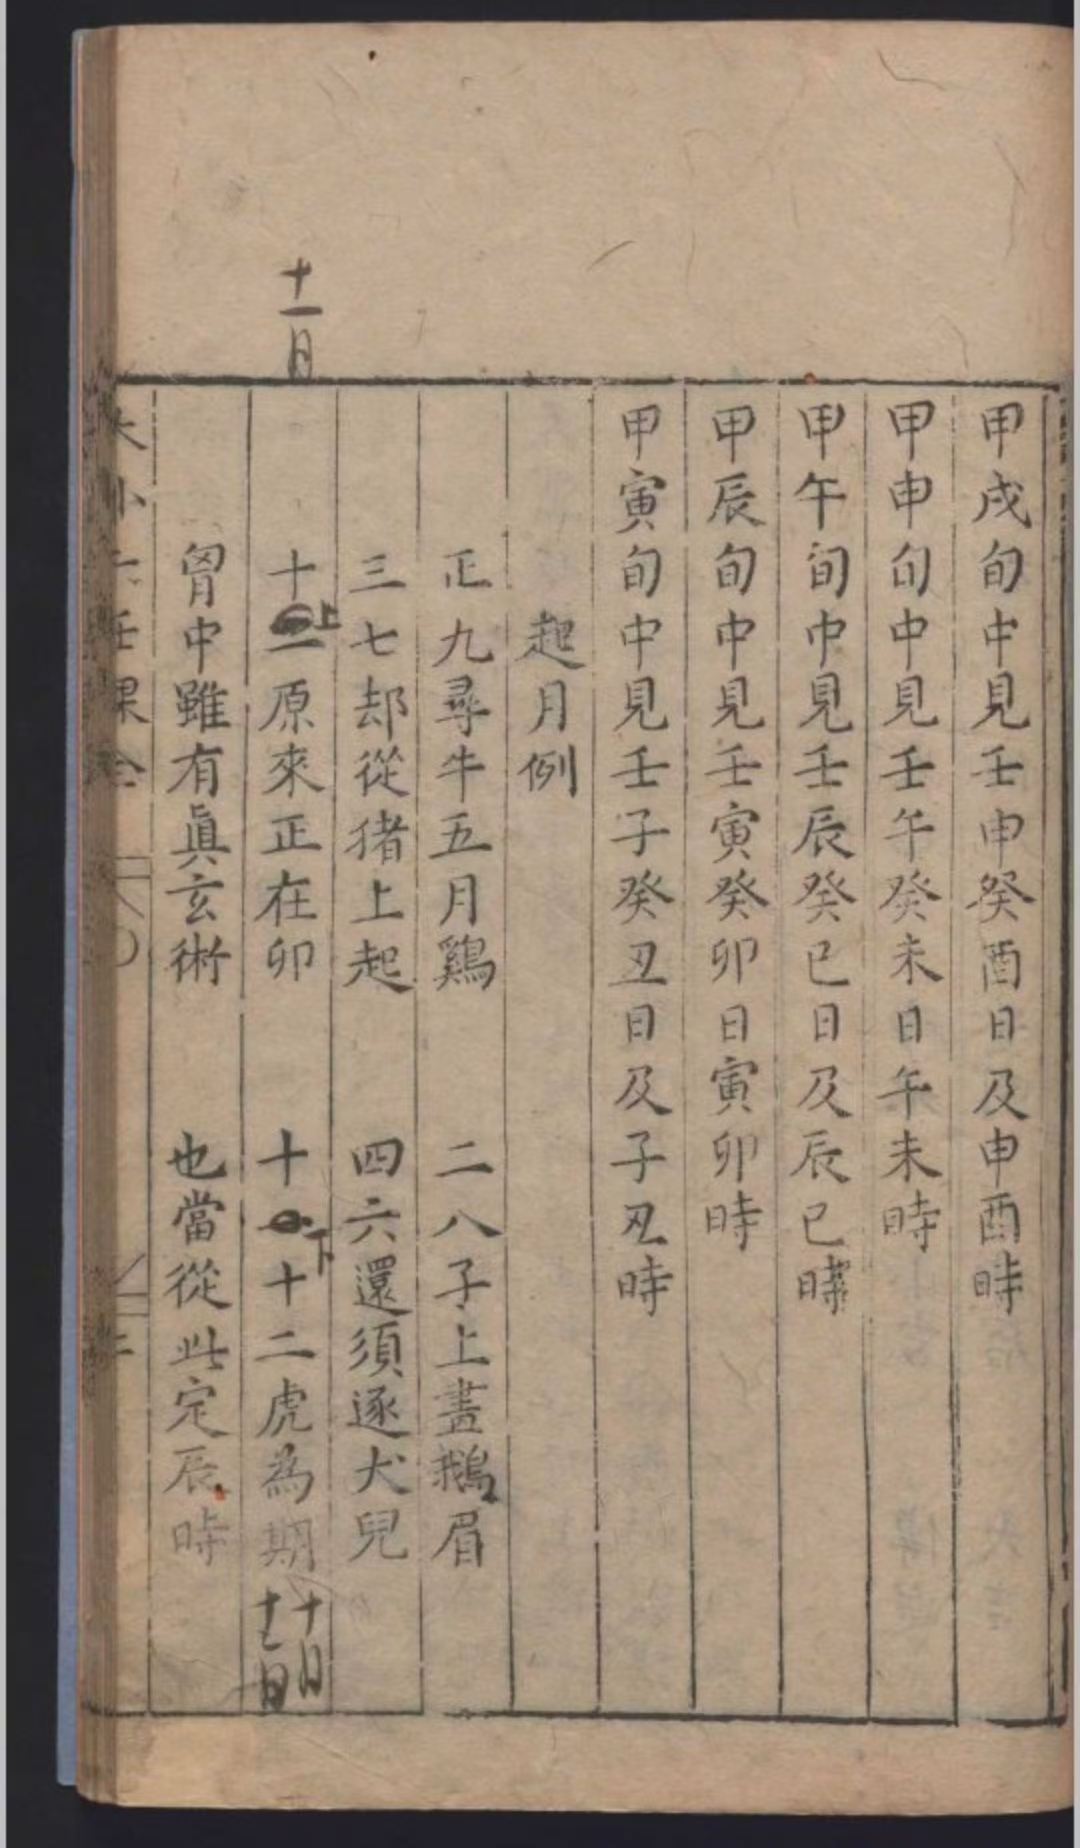 甲戌旬中見壬申癸酉日及申酉時
甲申旬中見壬午癸未日午未時
甲午旬中見壬辰癸巳日及辰巳時
甲辰旬中見壬寅癸卯日寅卯時
甲寅旬中見壬子癸丑日及子丑時
起月例
正九尋牛五月鷄 二八子上畫鵝眉
三七却從猪上起 四六還須逐犬兒
十一月
十一上原來正在卯 十下十二虎為期
十月
胷中雖有眞玄術 也當從此定辰時